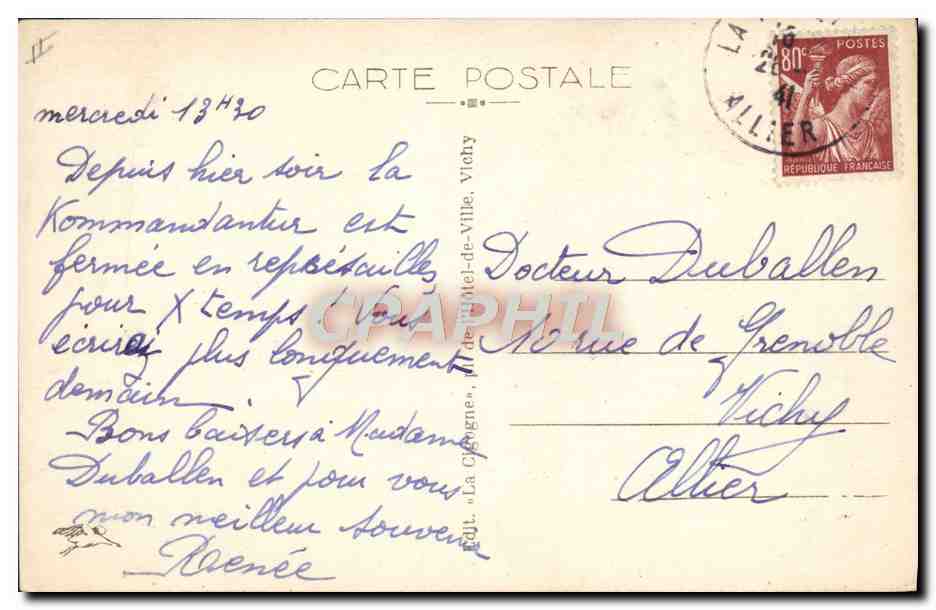 CARTE POSTALE
mercredi 13H30
Depuis hier soir la
Kommandantur est
fermée en représailles
pour X temps! Vous
écrirai plus longuement
demain.
Bons baisers à Madame
Duballen et pour vous
mon meilleur souvenir
Renée
Edit. "La Cigogne", de l'Hôtel-de-Ville, Vichy
80c
POSTES
RÉPUBLIQUE FRANÇAISE
LA
41
ALLIER
Docteur Duballen
10 rue de Grenoble
Vichy
Allier
CPAPHIL